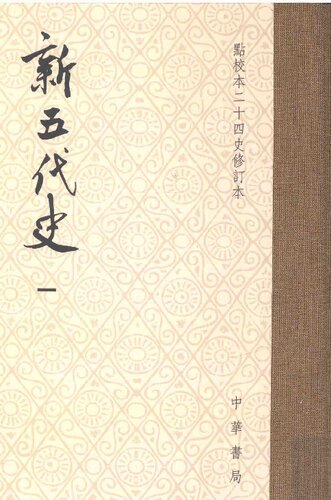 點校本二十四史修訂本
新五代史 一
中華書局